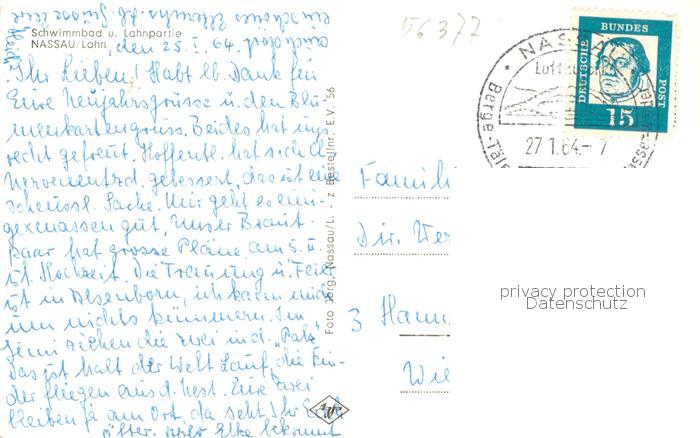 Schwimmbad u. Lahnpartie
NASSAU/Lahn
den 25. I. 64.
Ihr Lieben! Habt lb. Dank für
Eure Neujahrsgrüsse u. den Blu-
menkartengruss. Beides hat uns
recht gefreut. Hoffentl. hat sich d.
Nervenentzd. gebessert, das ist eine
scheussl. Sache. Mir geht es eini-
germassen gut, unser Braut-
paar hat grosse Pläne, am 5. II.
ist Hochzeit. Die Trauung u. Feier
ist in Alsenborn, ich kann mich
um nichts kümmern. Im
ziehen die zwei in d. „Palz“
Das ist halt der Welt Lauf, die Kin-
der fliegen aus d. Nest. Eure zwei
bleiben ja am Ort, da seht Ihr Euch
öfter.
Foto Jörg, Nassau/L. - z Bestellnr. E.V. 56
56377
NASSAU
Luftkurort
27.1.64.-7
DEUTSCHE
BUNDES
POST
15
Famili
Dir. Wer
3 Hann
Wie
privacy protection
Datenschutz